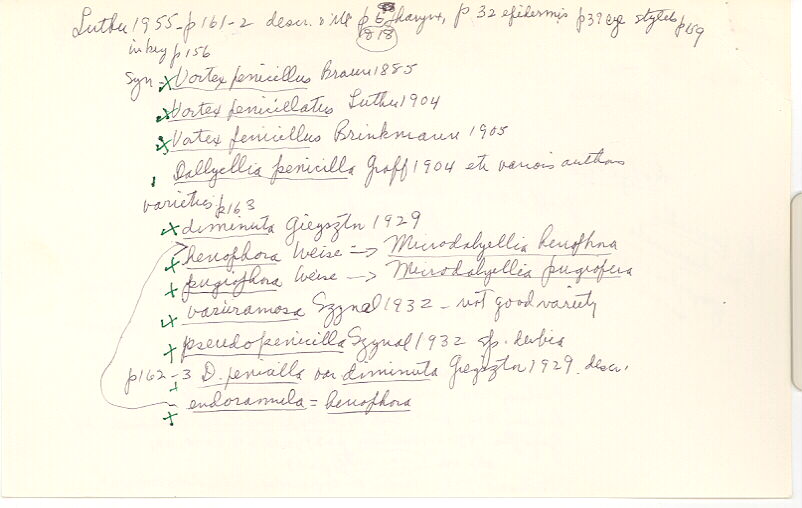 Luther 1955 - p 161-2 descr. & ill p 6 pharynx, p 32 epidermis p 39 eye stylets p 159
1818
in key p 156
Syn - x Vortex penicillus Braun 1885
x Vortex penicillatus Luther 1904
x Vortex penicillus Brinkmann 1905
Dallyellia penicilla Graff 1904 etc various authors
varieties p 163
x diminuta Gieysztn 1929
x henophora Weise => Microdalyellia henophora
x pugiophora Weise -> Microdalyellia pugiofera
x variramosa Szynal 1932 - not good variety
x pseudopenicilla Szynal 1932 sp. dubia
p 162-3 D. penicilla var diminuta Gieysztn 1929. descr.
x endoramula = henophora